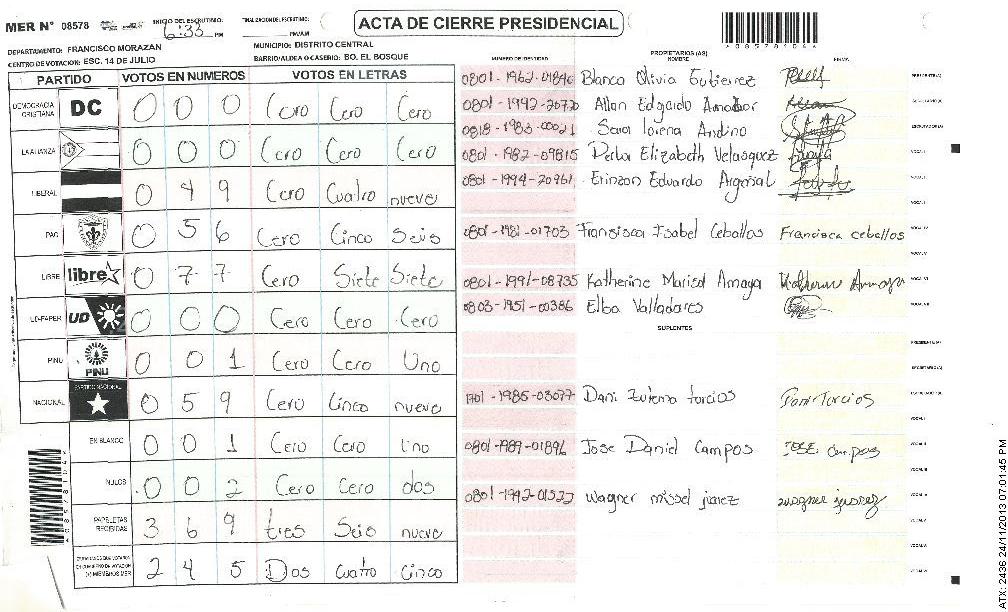 MER N° 08578
INICIO DEL ESCRUTINIO: 6:33 PM
FINALIZACION DEL ESCRUTINIO: PM/AM
ACTA DE CIERRE PRESIDENCIAL
A08578104
DEPARTAMENTO: FRANCISCO MORAZAN
MUNICIPIO: DISTRITO CENTRAL
CENTRO DE VOTACION: ESC. 14 DE JULIO
BARRIO/ALDEA O CASERIO: BO. EL BOSQUE
PARTIDO VOTOS EN NUMEROS VOTOS EN LETRAS
DEMOCRACIA CRISTIANA DC 0 0 0 Cero Cero Cero
LA ALIANZA 0 0 0 Cero Cero Cero
LIBERAL 0 4 9 Cero Cuatro nueve
PAC 0 5 6 Cero Cinco Seis
LIBRE libre 0 7 7 Cero Siete Siete
UD-FAPER UD 0 0 0 Cero Cero Cero
PINU PINU 0 0 1 Cero Cero Uno
NACIONAL PARTIDO NACIONAL 0 5 9 Cero Cinco nueve
EN BLANCO 0 0 1 Cero Cero Uno
NULOS 0 0 2 Cero Cero dos
PAPELETAS RECIBIDAS 3 6 9 tres Seis nueve
CIUDADANOS QUE VOTARON EN CUADERNO DE VOTACION (+) MIEMBROS MER 2 4 5 Dos cuatro cinco
PROPIETARIOS (AS)
NUMERO DE IDENTIDAD NOMBRE FIRMA
0801-1962-04896 Blanca Olivia Gutierrez PRESIDENTE(A)
0801-1992-20720 Allan Edgardo Amador SECRETARIO(A)
0818-1983-00021 Sara lorena Andino ESCRUTADOR(A)
0801-1982-09815 Elizabeth Velasquez VOCAL I
0801-1994-20961 Erinzon Eduardo Argeñal VOCAL II
VOCAL III
0801-1981-01703 Fransisca Isabel Ceballos Francisca ceballos VOCAL IV
VOCAL V
0801-1991-08735 Katherine Marisol Amaya VOCAL VI
0803-1951-00386 Elba Valladares VOCAL VII
SUPLENTES
PRESIDENTE(A)
SECRETARIO(A)
1701-1985-03077 Dani Zulema torcios Dani Torcios ESCRUTADOR(A)
VOCAL I
0801-1989-01896 Jose Daniel Campos JOSE Campos VOCAL II
VOCAL III
0801-1992-01522 Wagner missel jarez wagner juarez VOCAL IV
VOCAL V
VOCAL VI
VOCAL VII
A08578104
ATX: 2436 24/11/2013 07:01:45 PM